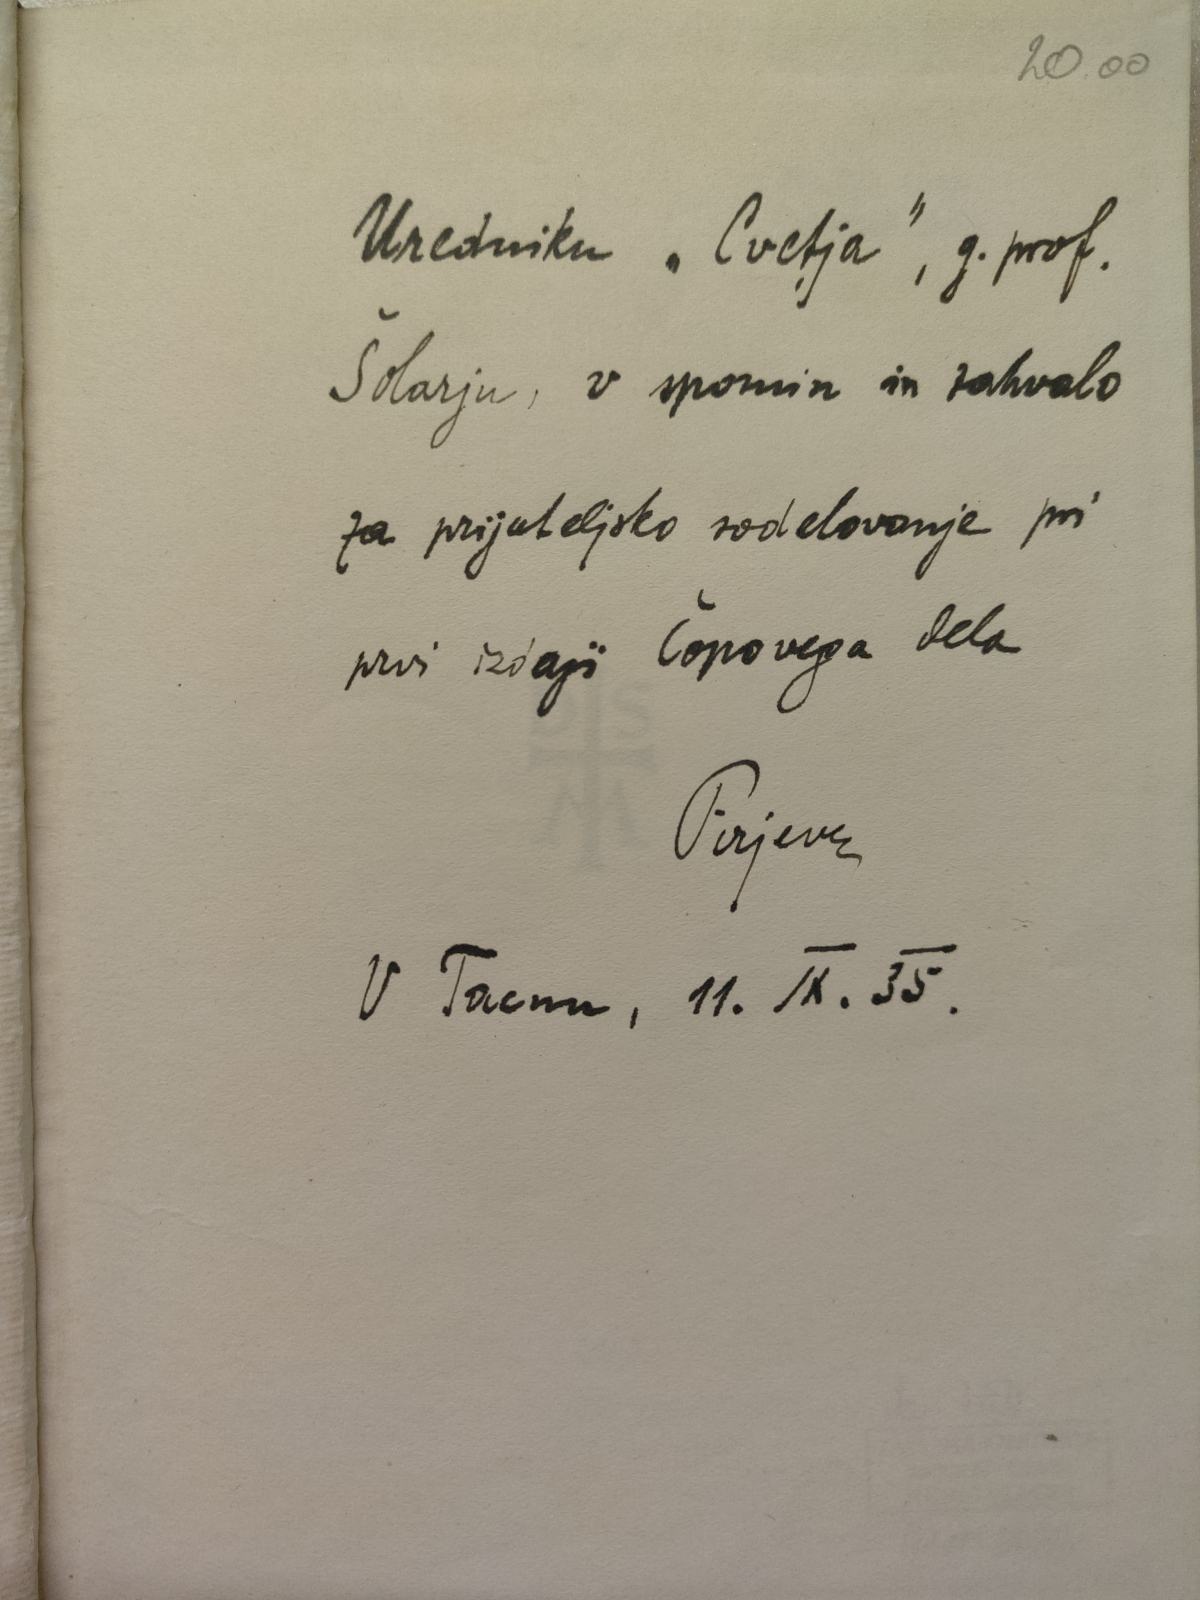 20.00
Uredniku „Cvetja", g. prof.
Šolarju, v spomin in zahvalo
za prijateljsko sodelovanje pri
prvi izdaji Čopovega dela
Pirjevec
V Tacnu, 11. IX. 35.